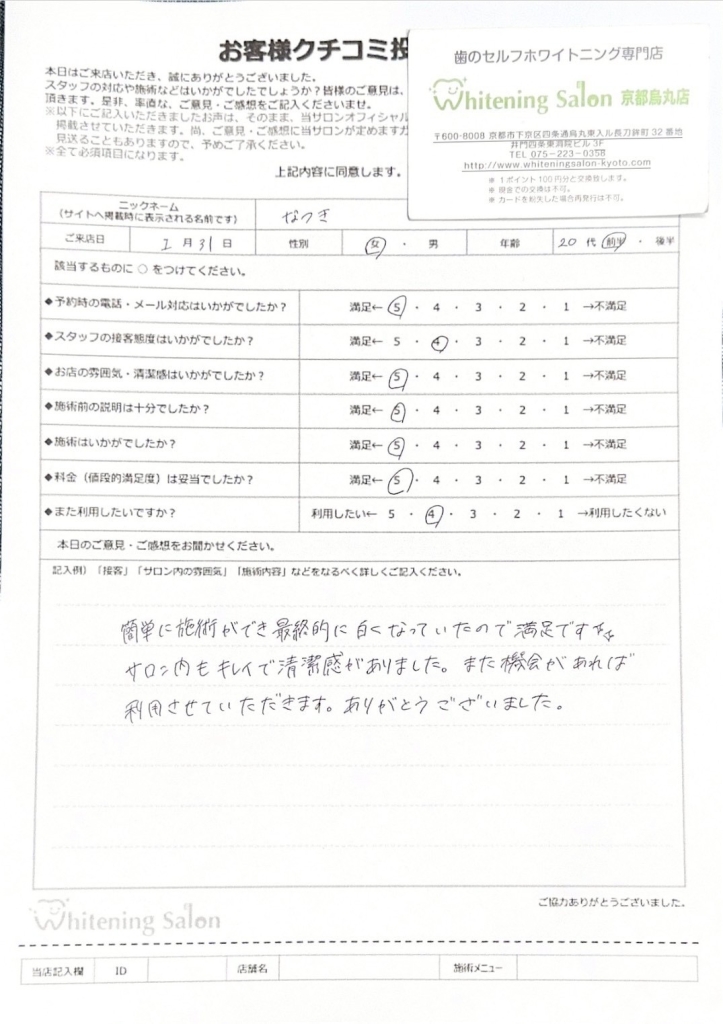 お客様クチコミ投
本日はご来店いただき、誠にありがとうございました。
スタッフの対応や施術などはいかがでしたでしょうか？皆様のご意見は、
頂きます。是非、率直な、ご意見・ご感想をご記入くださいませ。
※以下にご記入いただきましたお声は、そのまま、当サロンオフィシャル
掲載させていただきます。尚、ご意見・ご感想に当サロンが定めますガ
見送ることもありますので、予めご了承ください。
※全て必須項目になります。
上記内容に同意します。
歯のセルフホワイトニング専門店
Whitening Salon 京都烏丸店
〒600-8008 京都市下京区四条通烏丸東入ル長刀鉾町 32 番地
井門四条東洞院ビル 3F
TEL 075-223-0358
http://www.whiteningsalon-kyoto.com
※ 1ポイント 100円分と交換致します。
※ 現金での交換は不可。
※ カードを紛失した場合再発行は不可。
ニックネーム
（サイトへ掲載時に表示される名前です）
なつき
ご来店日 1 月 31 日 性別 女 ・ 男 年齢 20 代 前半 ・ 後半
該当するものに ○ をつけてください。
◆予約時の電話・メール対応はいかがでしたか？ 満足← 5 ・ 4 ・ 3 ・ 2 ・ 1 →不満足
◆スタッフの接客態度はいかがでしたか？ 満足← 5 ・ 4 ・ 3 ・ 2 ・ 1 →不満足
◆お店の雰囲気・清潔感はいかがでしたか？ 満足← 5 ・ 4 ・ 3 ・ 2 ・ 1 →不満足
◆施術前の説明は十分でしたか？ 満足← 5 ・ 4 ・ 3 ・ 2 ・ 1 →不満足
◆施術はいかがでしたか？ 満足← 5 ・ 4 ・ 3 ・ 2 ・ 1 →不満足
◆料金（値段的満足度）は妥当でしたか？ 満足← 5 ・ 4 ・ 3 ・ 2 ・ 1 →不満足
◆また利用したいですか？ 利用したい← 5 ・ 4 ・ 3 ・ 2 ・ 1 →利用したくない
本日のご意見・ご感想をお聞かせください。
記入例）「接客」「サロン内の雰囲気」「施術内容」などをなるべく詳しくご記入ください。
簡単に施術ができ最終的に白くなっていたので満足です
サロン内もキレイで清潔感がありました。また機会があれば
利用させていただきます。ありがとうございました。
ご協力ありがとうございました。
Whitening Salon
当店記入欄 ID 店舗名 施術メニュー